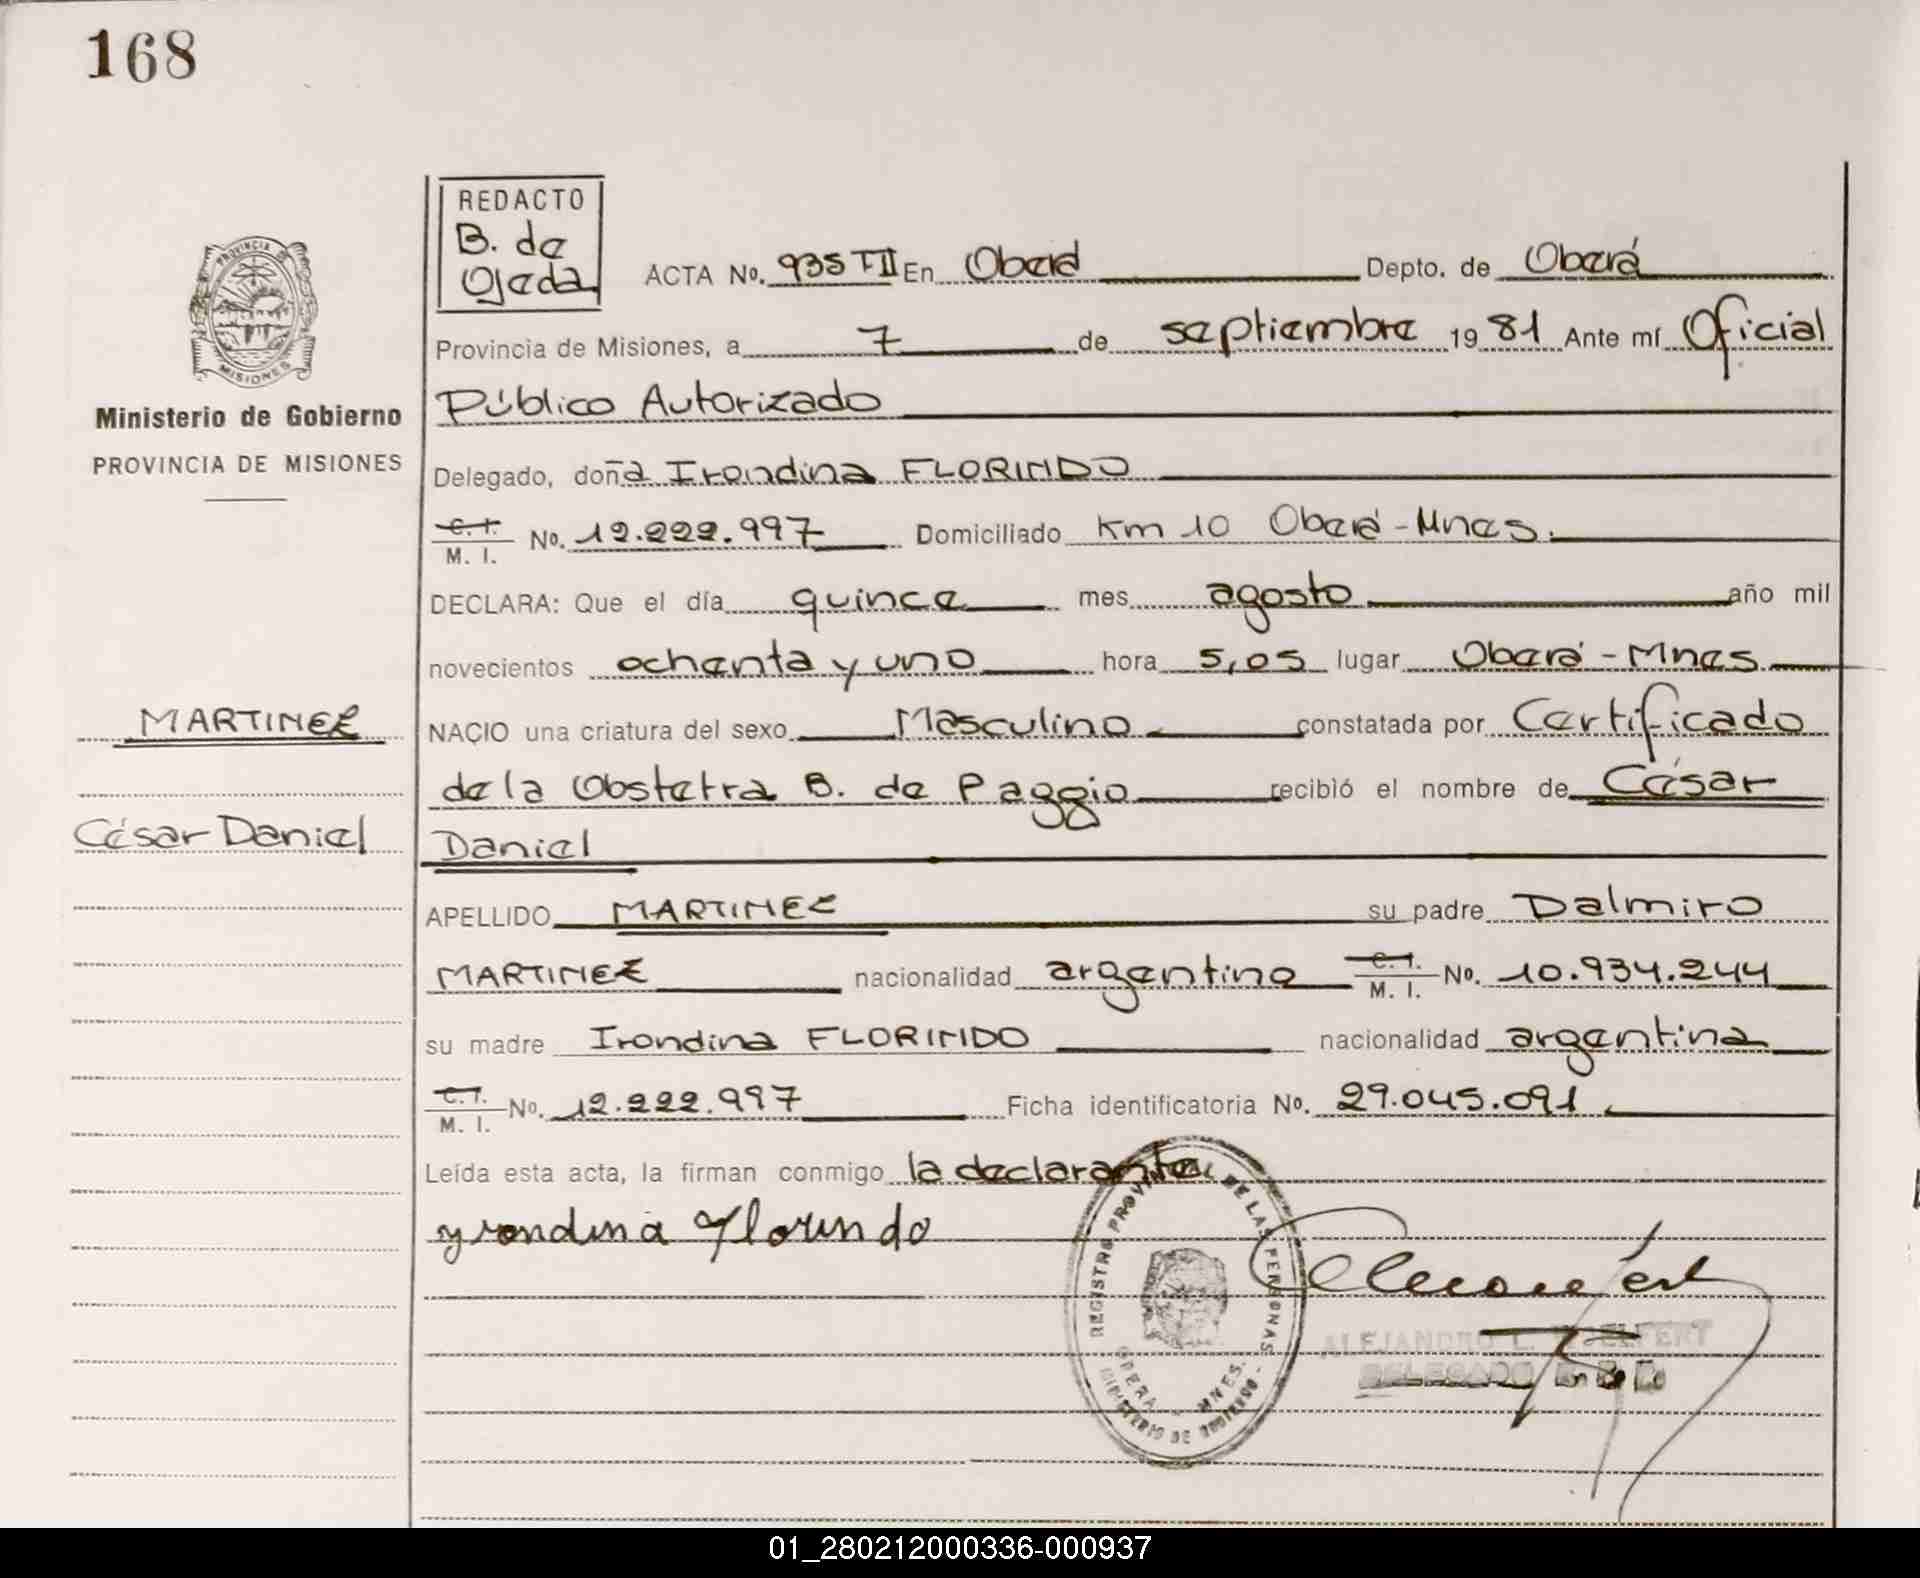 168
PROVINCIA DE
MISIONES
Ministerio de Gobierno
PROVINCIA DE MISIONES
REDACTO
B. de
Ojeda
ACTA No. 935 TII En Oberá Depto. de Oberá
Provincia de Misiones, a 7 de septiembre 1981 Ante mí Oficial
Público Autorizado
Delegado, doña Irondina FLORINDO
C.I.
M. I. No. 12.222.997 Domiciliado Km 10 Oberá-Mnes.
DECLARA: Que el día quince mes agosto año mil
novecientos ochenta y uno hora 5,05 lugar Oberá-Mnes
MARTINEZ
NACIO una criatura del sexo Masculino constatada por Certificado
de la Obstetra B. de Paggio recibió el nombre de César
César Daniel
Daniel
APELLIDO MARTINEZ su padre Dalmiro
MARTINEZ nacionalidad argentino C.I.
M. I. No. 10.934.244
su madre Irondina FLORINDO nacionalidad argentina
C.I.
M. I. No. 12.222.997 Ficha identificatoria No. 29.045.091
Leída esta acta, la firman conmigo la declarante
yrondina Florindo
REGISTRO PROVINCIAL DE LAS PERSONAS
OBERA - MNES.
MINISTERIO DE GOBIERNO
ALEJANDRO L.
DELEGADO
01_280212000336-000937